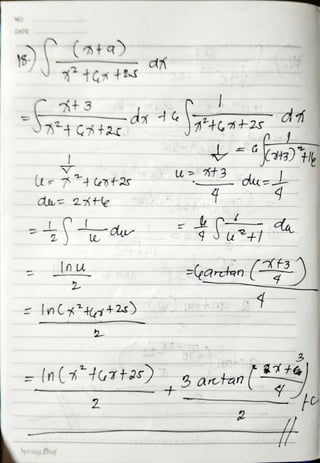 NO.
DATE
18.) ∫ (x+9) / x² + 6x + 25 dx
= ∫ x+3 / x² + 6x + 25 dx + 6 ∫ 1 / x² + 6x + 25 dx
= 6 ∫ 1 / (x+3)² + 16
u = x² + 6x + 25
u = x+3 / 4 du = 1/4
du = 2x + 6
= 1/2 ∫ 1/u du = 6/4 ∫ 1 / u² + 1 du
= ln u / 2 = 6 arctan (x+3 / 4) / 4
= ln (x² + 6x + 25) / 2
= ln (x² + 6x + 25) / 2 + 3 arctan ( x + 3 / 4 ) / 2 + C